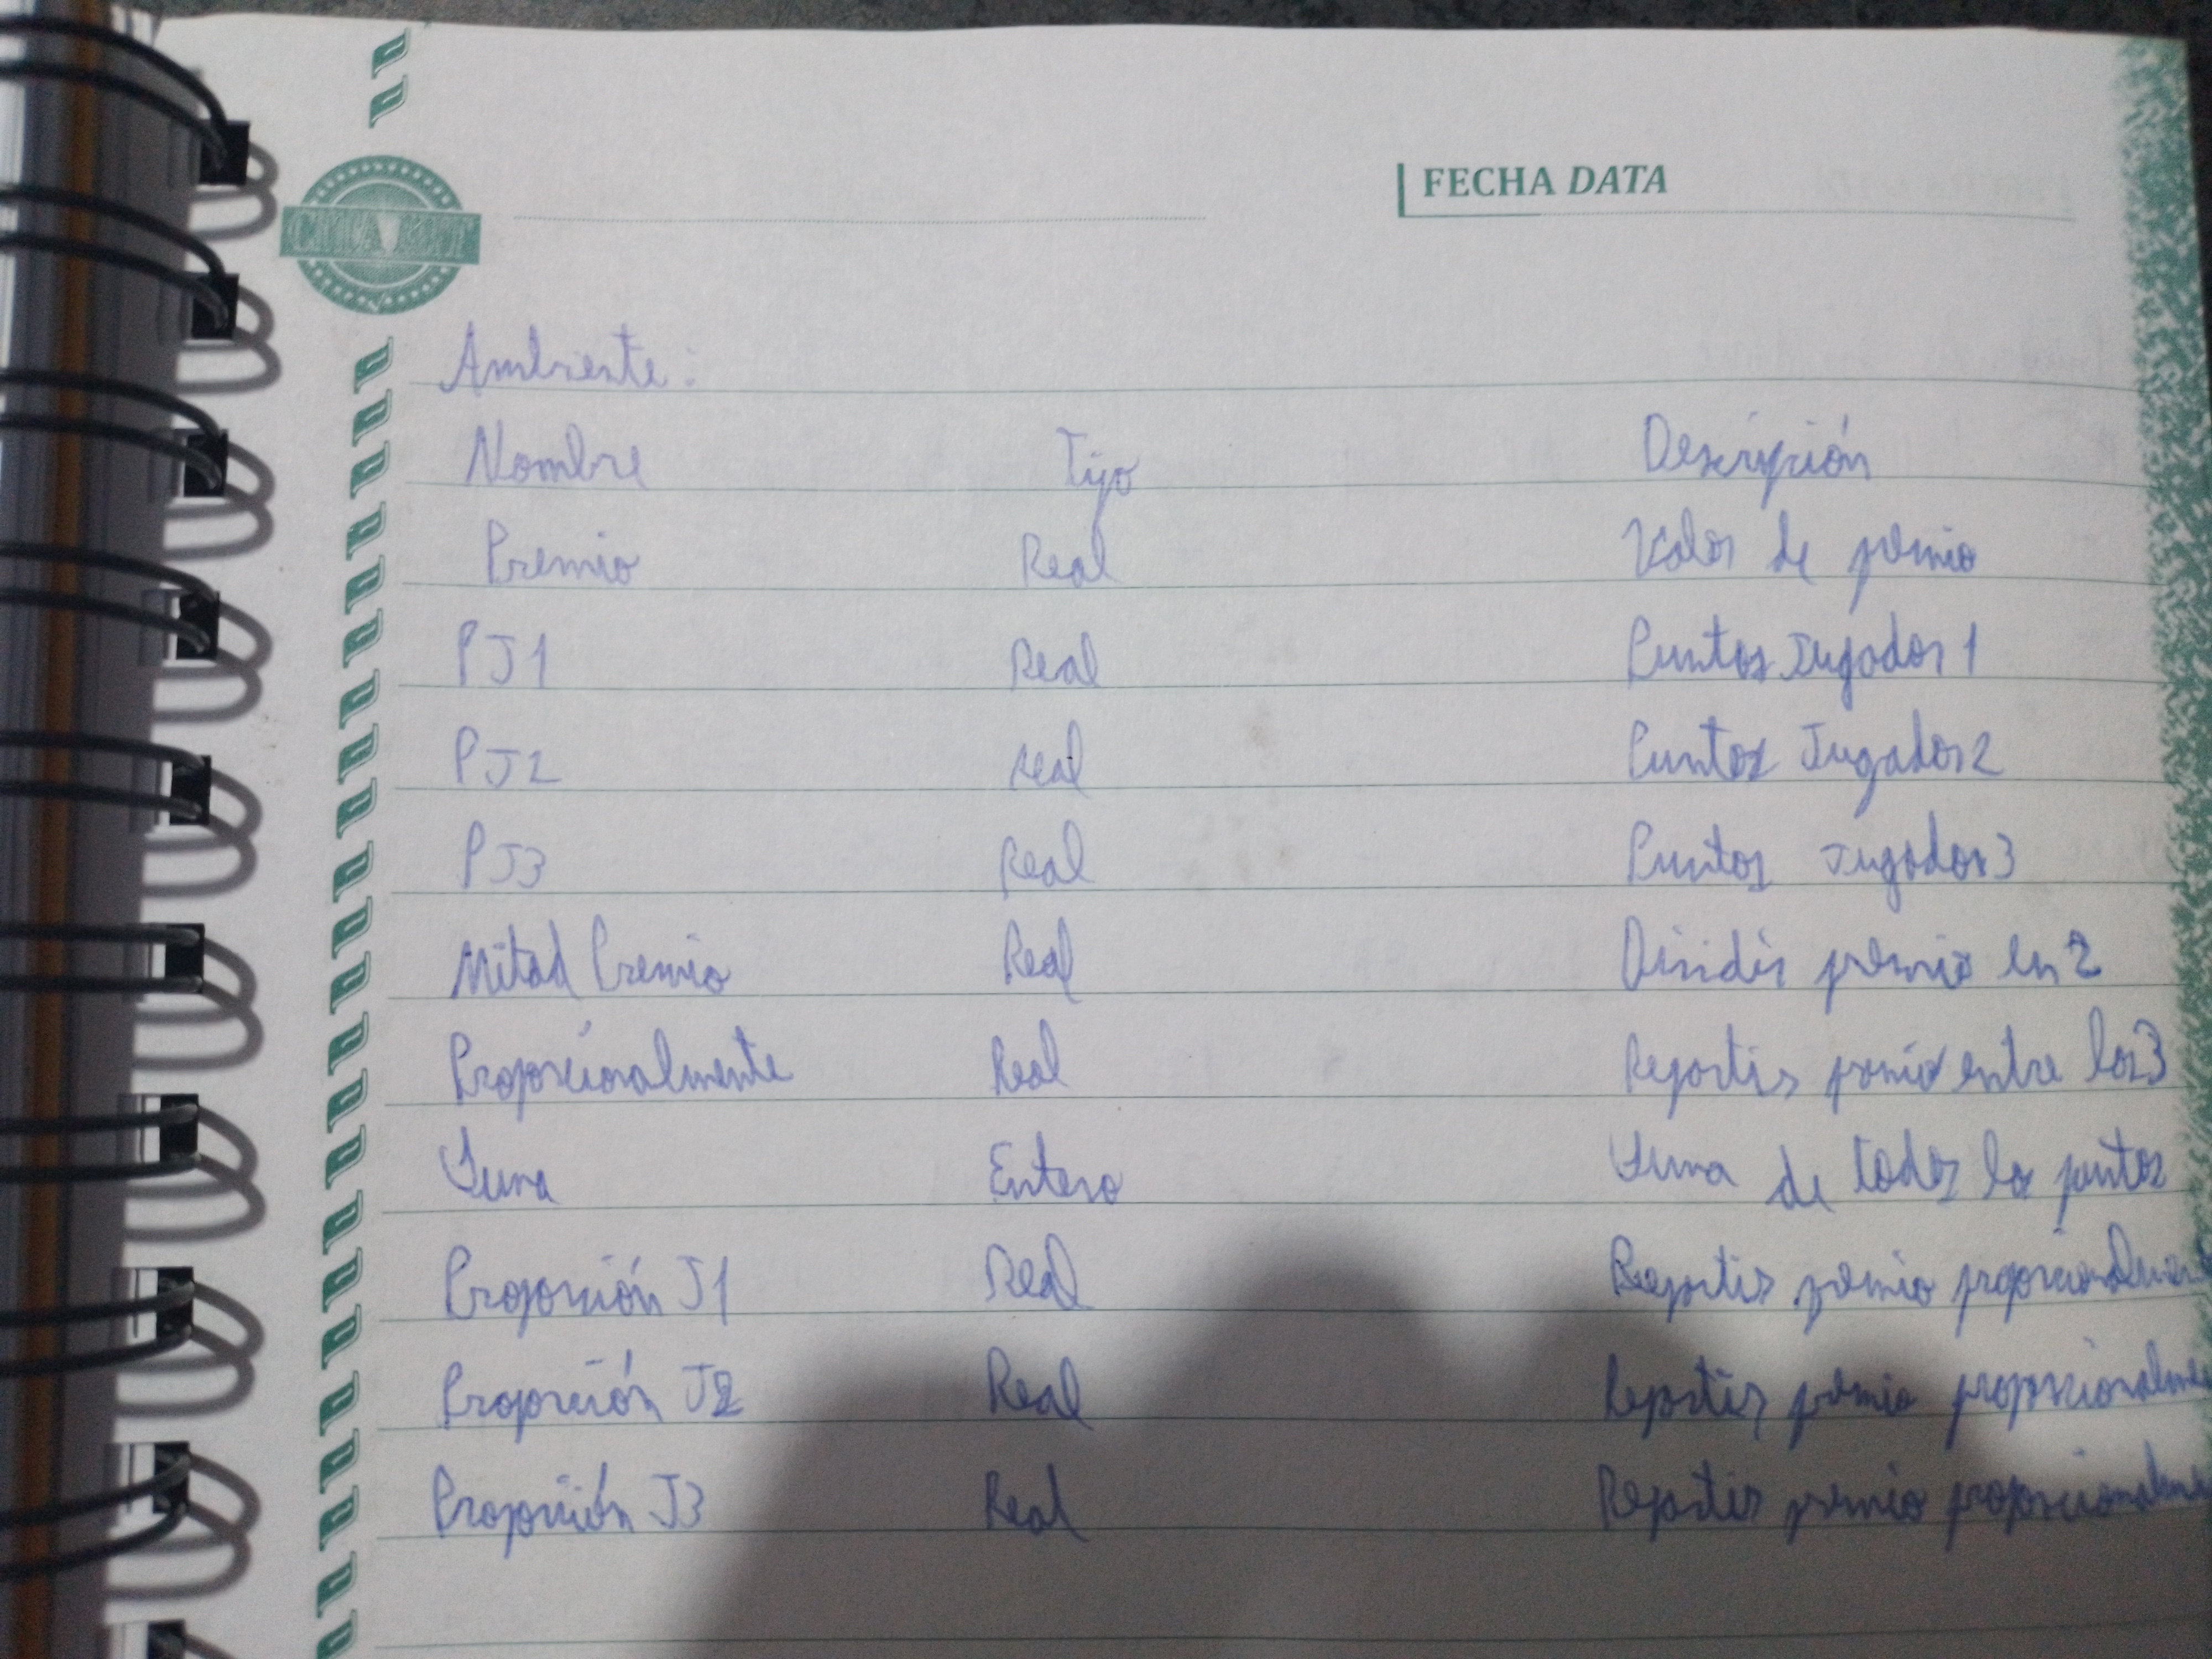 FECHA DATA
Ambiente:
Nombre Tipo Descripción
Premio Real Valor de premio
PJ1 Real Puntos Jugador 1
PJ2 Real Puntos Jugador 2
PJ3 Real Puntos Jugador 3
Mitad Premio Real Dividir premio en 2
Proporcionalmente Real Repartir premio entre los 3
Suma Entero Suma de todos los puntos
Proporción J1 Real Repartir premio proporcionalmen
Proporción J2 Real Repartir premio proporcionalmen
Proporción J3 Real Repartir premio proporcionalmen